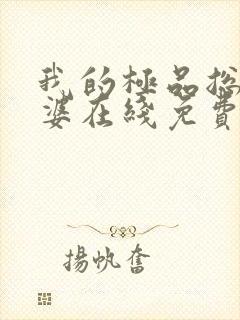 我的極品
婆在綫免費
揚帆奮